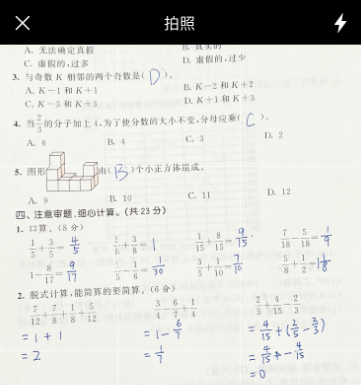 拍照
A. 无法确定真假
B. 真实的
C. 虚假的,过多
D. 虚假的,过少
3. 与奇数 K 相邻的两个奇数是( D )。
A. K－1 和 K＋1
B. K－2 和 K＋2
C. K－3 和 K＋3
D. K＋1 和 K＋3
4. 当2/3的分子加上 4,为了使分数的大小不变,分母应乘( C )。
A. 6
B. 4
C. 3
D. 2
5. 图形 由( B )个小正方体组成。
A. 9
B. 10
C. 11
D. 12
四、注意审题,细心计算。(共 23 分)
1. 口算。(8 分)
1/5＋3/5＝4/5
5/8＋3/8＝1
1/15＋8/15＝9/15
7/18－5/18＝1/9
1－8/17＝9/17
1/5－1/6＝1/30
3/5＋1/10＝7/10
5/8＋1/2＝1 1/8
2. 脱式计算,能简算的要简算。(6 分)
7/12＋7/8＋1/8＋5/12
3/4－6/7＋1/4
2/5＋4/15－2/3
＝1＋1
＝1－6/7
＝4/15＋(2/5－2/3)
＝2
＝1/7
＝4/15＋－4/15
＝0